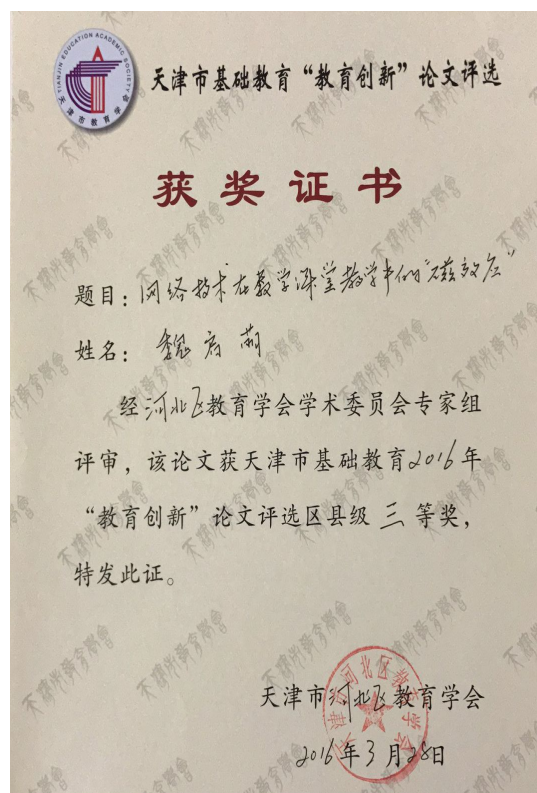 TIANJIN EDUCATION ACADEMIC SOCIETY
天津市教育学会
天津市基础教育“教育创新”论文评选
获奖证书
题目：网络技术在数学课堂教学中的“磁效应”
姓名：魏 萌
经河北区教育学会学术委员会专家组
评审，该论文获天津市基础教育2016年
“教育创新”论文评选区县级 三 等奖，
特发此证。
天津市河北区教育学会
2016年3月28日
天津市河北区教育学会